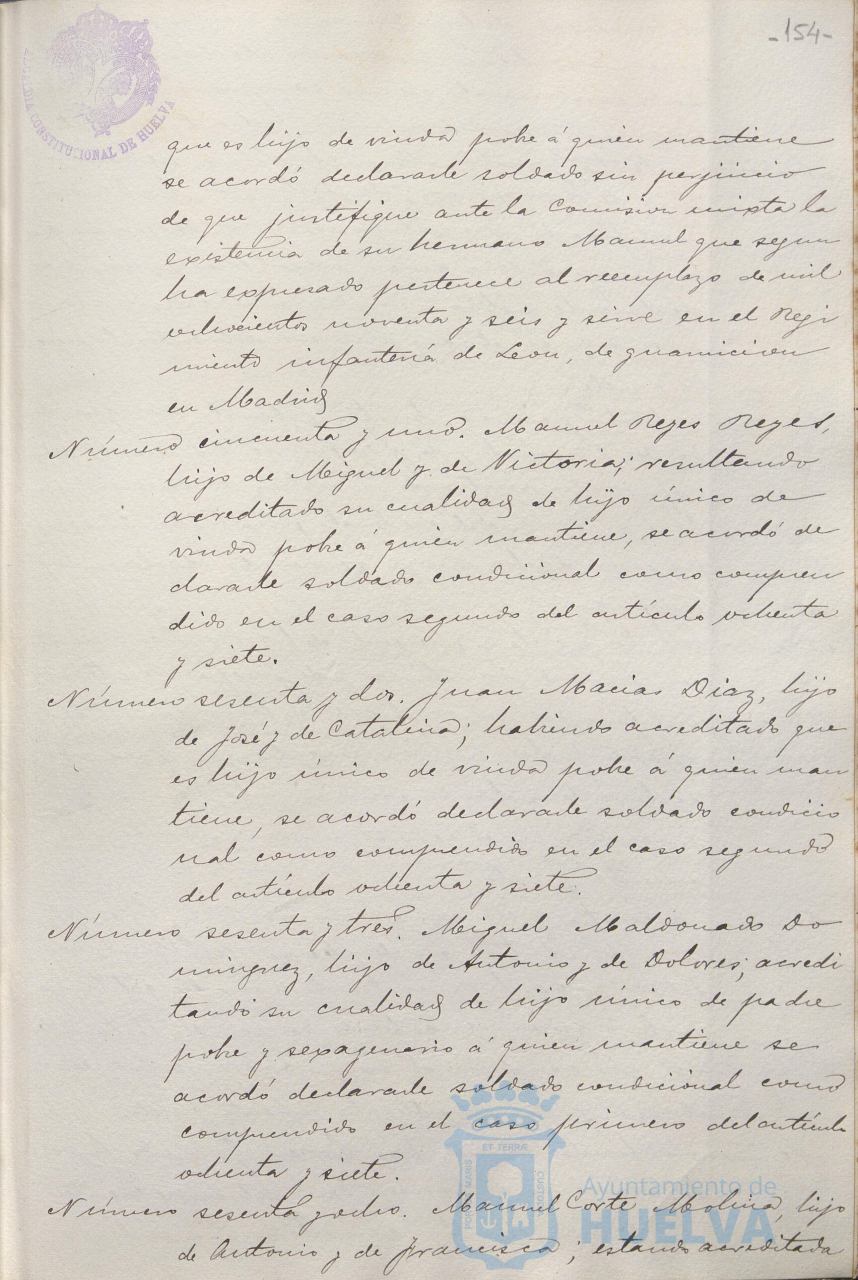 -154-
ALCALDIA CONSTITUCIONAL DE HUELVA
que es hijo de viuda pobre á quien mantiene
se acordó declararle soldado sin perjuicio
de que justifique ante la Comision mixta la
existencia de su hermano Manuel que segun
ha expresado pertenece al reemplazo de mil
ochocientos noventa y seis y sirve en el Regi
miento infantería de Leon, de guarnicion
en Madrid
Número cincuenta y uno. Manuel Reyes Reyes,
hijo de Miguel y de Victoria; resultando
acreditado su cualidad de hijo único de
viuda pobre á quien mantiene, se acordó de
clararle soldado condicional como compren
dido en el caso segundo del artículo ochenta
y siete.
Número sesenta y dos. Juan Macias Diaz, hijo
de José y de Catalina; habiendo acreditado que
es hijo único de viuda pobre á quien man
tiene, se acordó declararle soldado condicio
nal como comprendido en el caso segundo
del artículo ochenta y siete.
Número sesenta y tres. Miguel Maldonado Do
minguez, hijo de Antonio y de Dolores; acredi
tando su cualidad de hijo único de padre
pobre y sexagenario á quien mantiene se
acordó declararle soldado condicional como
comprendido en el caso primero del artículo
ochenta y siete.
Número sesenta y ocho. Manuel Corte Molina, hijo
de Antonio y de Francisca; estando acreditada
PORTUS MARIS ET TERRAE CUSTODIA
Ayuntamiento de
HUELVA